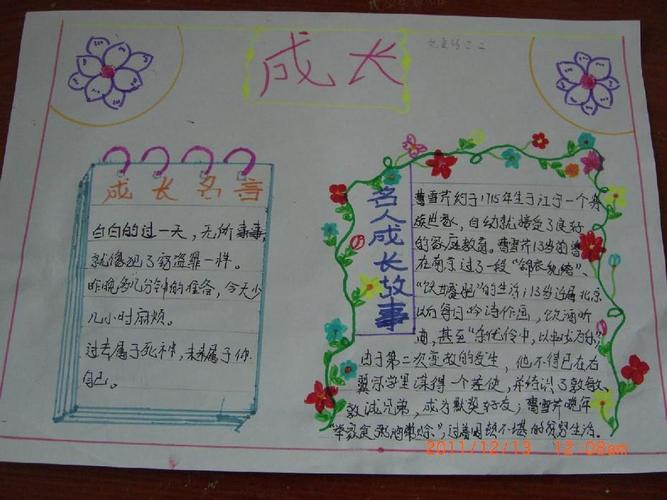 成长
成长名言
白白的过一天，无所事事，
就像犯了窃盗罪一样。
昨晚多几分钟的准备，今天少
几小时麻烦。
过去属于死神，未来属于你
自己。
名人成长故事
曹雪芹约于1715年生于江宁一个
族世家，自幼就接受了良好
的家庭教育。曹雪芹13岁前曾
在南京过了一段“锦衣纨绔”、
的生活；13岁迁居北京
以后每日吟诗作画，饮酒听
由于第二次变故的发生，他不得已在右
翼宗学里谋得一个差使，并结识了敦敏、
敦诚兄弟，成为默契好友；曹雪芹晚年
过着困顿不堪的穷苦生活。
2011/12/13 12:08am